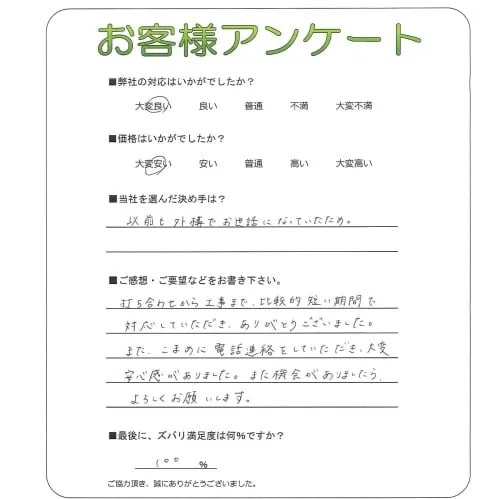 お客様アンケート
■弊社の対応はいかがでしたか？
大変良い 良い 普通 不満 大変不満
■価格はいかがでしたか？
大変安い 安い 普通 高い 大変高い
■当社を選んだ決め手は？
以前も外構でお世話になっていたため。
■ご感想・ご要望などをお書き下さい。
打ち合わせから工事まで、比較的短い期間で
対応していただき、ありがとうございました。
また、こまめに電話連絡をしていただき、大変
安心感がありました。また機会がありましたら、
よろしくお願いします。
■最後に、ズバリ満足度は何%ですか？
100 %
ご協力頂き、誠にありがとうございました。